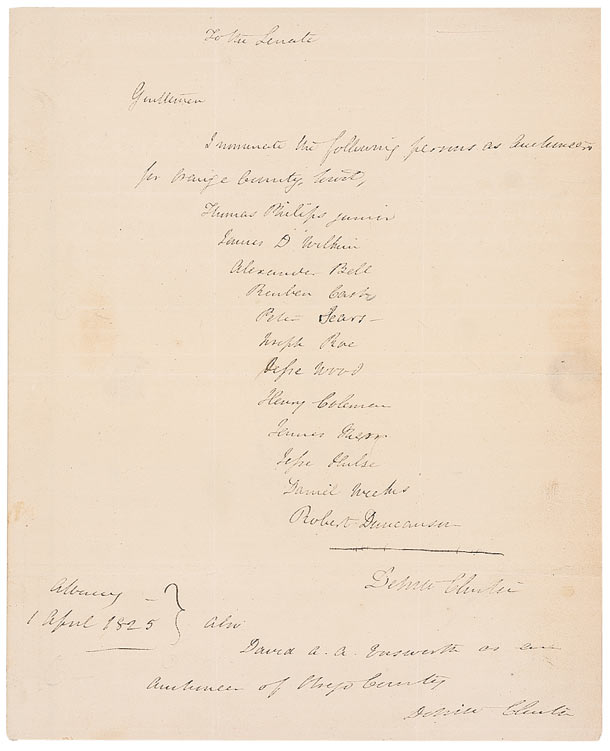 To the Senate
Gentlemen
I nominate the following persons as Auctioneers
for Orange County, to wit,
Thomas Philips junior
James D Wilkin
Alexander Bell
Reuben Cash
Peter Sears
Joseph Roe
Jesse Wood
Henry Coleman
James
Jesse Hulse
Daniel Weeks
Robert Duncanson
DeWitt Clinton
Albany
1 April 1825
also
David A. A. Ensworth as an
Auctioneer of Otsego County
DeWitt Clinton